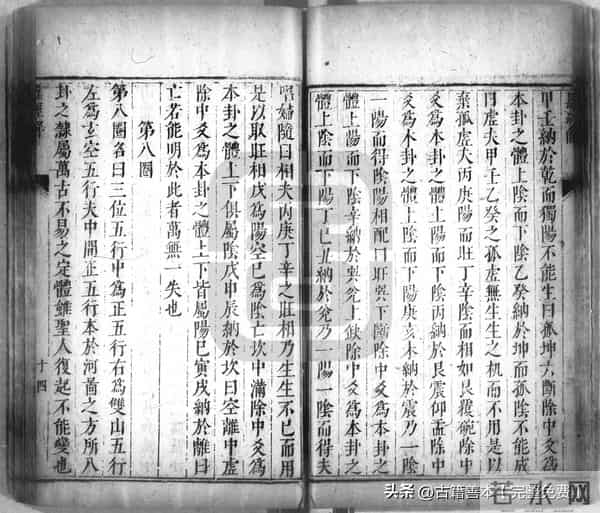 甲壬納於乾而獨陽不能生曰孤坤六斷除中爻為
本卦之體上陰而下陰乙癸納於坤而孤陰不能成
曰虛夫甲壬乙癸之孤虛無生生之机而不用是以
棄孤虛大丙庚陽而旺丁辛陰而相如艮覆碗除中
爻為本卦之體上陽而下陰丙納於艮震仰盂除中
爻為本卦之體上陰而下陽庚亥未納於震乃一陰
一陽而得陰陽相配曰旺巽下斷除中爻為本卦之
體上陽而下陰辛納於巽兌上缺除中爻為本卦之
體上陰而下陽丁巳丑納於兌乃一陽一陰而得夫
唱婦隨曰相夫丙庚丁辛之旺相乃生生不已而用
是以取旺相戌為陽空已為陰亡坎中滿除中爻為
本卦之體上下俱屬陰戊申辰納於坎曰空離中虛
除中爻為本卦之體上下皆屬陽巳寅戌納於離曰
亡若能明於此者萬無一失也
第八圈
第八圈名曰三位五行中為正五行右為雙山五行
左為玄空五行夫中開正五行本於河啚之方所八
卦之隸屬萬古不易之定體雖聖人復起不能變也
十四
头条 @古籍善本